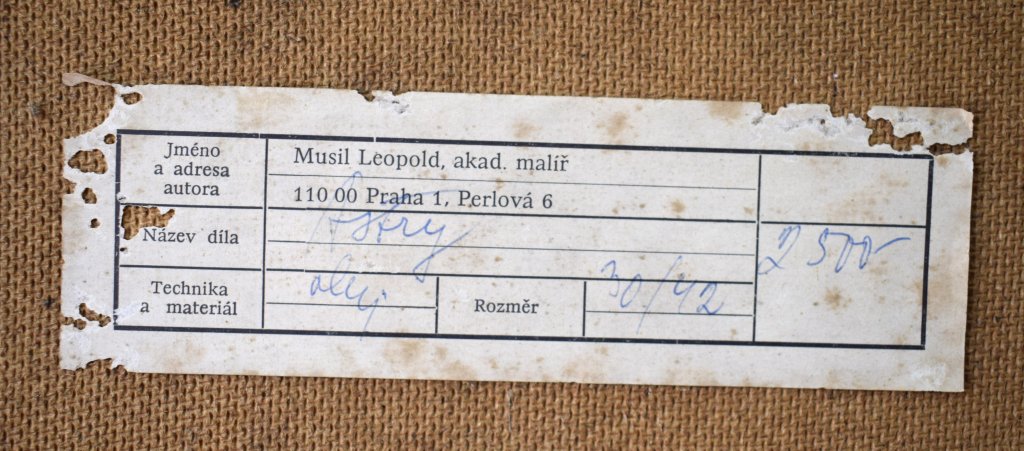 Jméno
a adresa
autora
Musil Leopold, akad. malíř
110 00 Praha 1, Perlová 6
Název díla
Astry
2 500
Technika
a materiál
olej
Rozměr
30/42